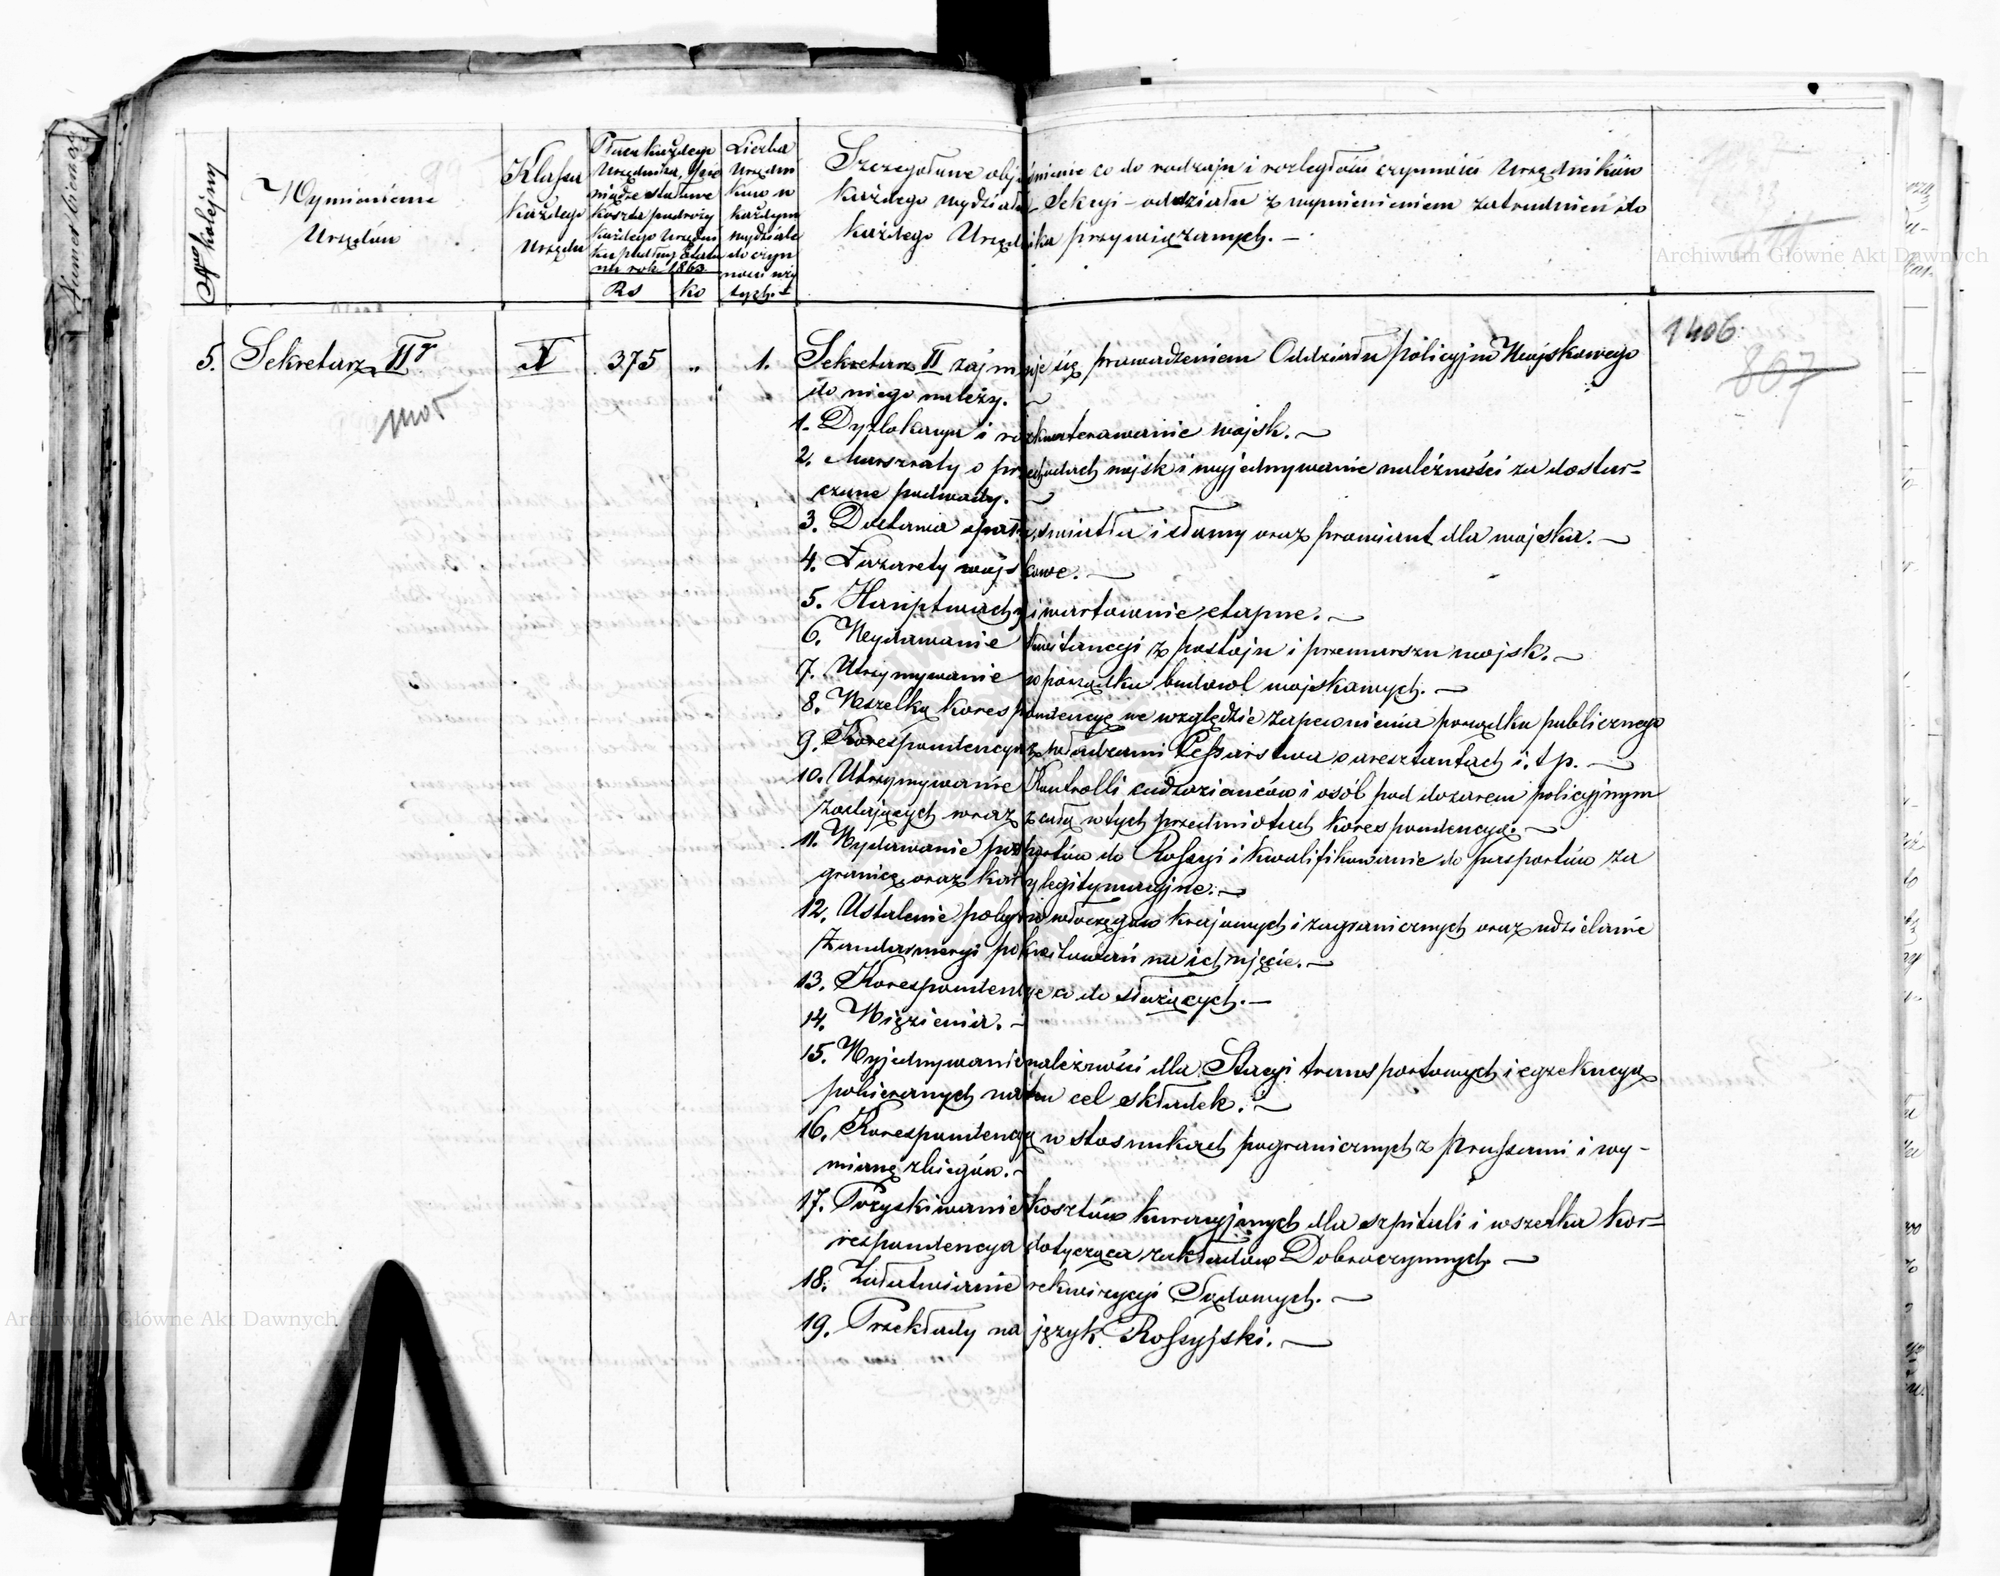 Nro kolejny
Wymienienie
Urzędów
Klassa
każdego
Urzędu
Płaca każdego
Urzędnika, pie
niądze stołowe
koszta podróży
każdego Urzędni
ka podług Etatu
na rok 1863
Rs
ko
Liczba
Urzędni
ków w
każdym
wydziale
do czyn
ności uży
tych. -
Szczegółowe objaśnienie co do rodzaju i rozległości czynności Urzędników
każdego wydziału, Sekcyi - oddziału z wymienieniem zatrudnień do
każdego Urzędnika przywiązanych. -
5. Sekretarz IIr X 375 „ 1. Sekretarz II zajmuje się prowadzeniem Oddziału policyjno Wojskowego
do niego należy. -
1. Dyzlokacya i rozkwaterowanie wojsk. -
2. Marszruty o przechodach wojsk i wyjednywanie należności za dostar=
czone podwody. -
3. Dostawa opału, światła i słomy oraz prowiant dla wojska. -
4. Lazarety wojskowe. -
5. Hauptwachy i wartownie etapne. -
6. Wydawanie kwitancyi z postoju i przemarszu wojsk. -
7. Utrzymywanie w porządku budowl wojskowych. -
8. Wszelką korespondencyę we względzie zapewnienia porządku publicznego
9. Korespondencya z władzami Cessarstwa o aresztantach i. t p. -
10. Utrzymywanie Kontrolli cudzoziemców i osób pod dozorem policyjnym
zostających wraz z całą w tych przedmiotach korespondencyą. -
11. Wydawanie pasportów do Rossyi i kwalifikowanie do pasportów za
granicę oraz karty legitymacyjne. -
12. Ustalenie pobytu włóczęgów krajowych i zagranicznych oraz udzielanie
Żandarmeryi pokwitowań na ich ujęcie. -
13. Korespondencye co do służących. -
14. Więzienia. -
15. Wyjednywanie należności dla Stacyi transportowych i egzekucya
pobieranych na ten cel składek. -
16. Korespondencyą w stosunkach pogranicznych z Prussami i wy-
mianę zbiegów. -
17. Pozyskiwanie kosztów kuracyjnych dla szpitali i wszelka kor=
respondencya dotycząca zakładów Dobroczynnych. -
18. Załatwianie rekwizycyi Sądowych. -
19. Przekłady na język Rossyjski. -
1406.
807
Archiwum Główne Akt Dawnych
Archiwum Główne Akt Dawnych